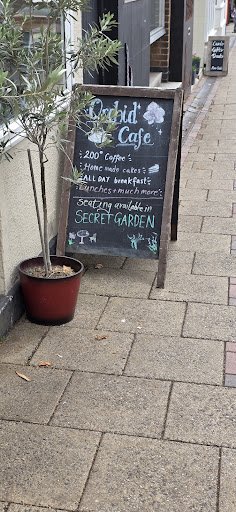 Orchid
Cafe
200° Coffee
Home made cakes
ALL DAY breakfast
Lunches + much more
Seating available in
SECRET GARDEN